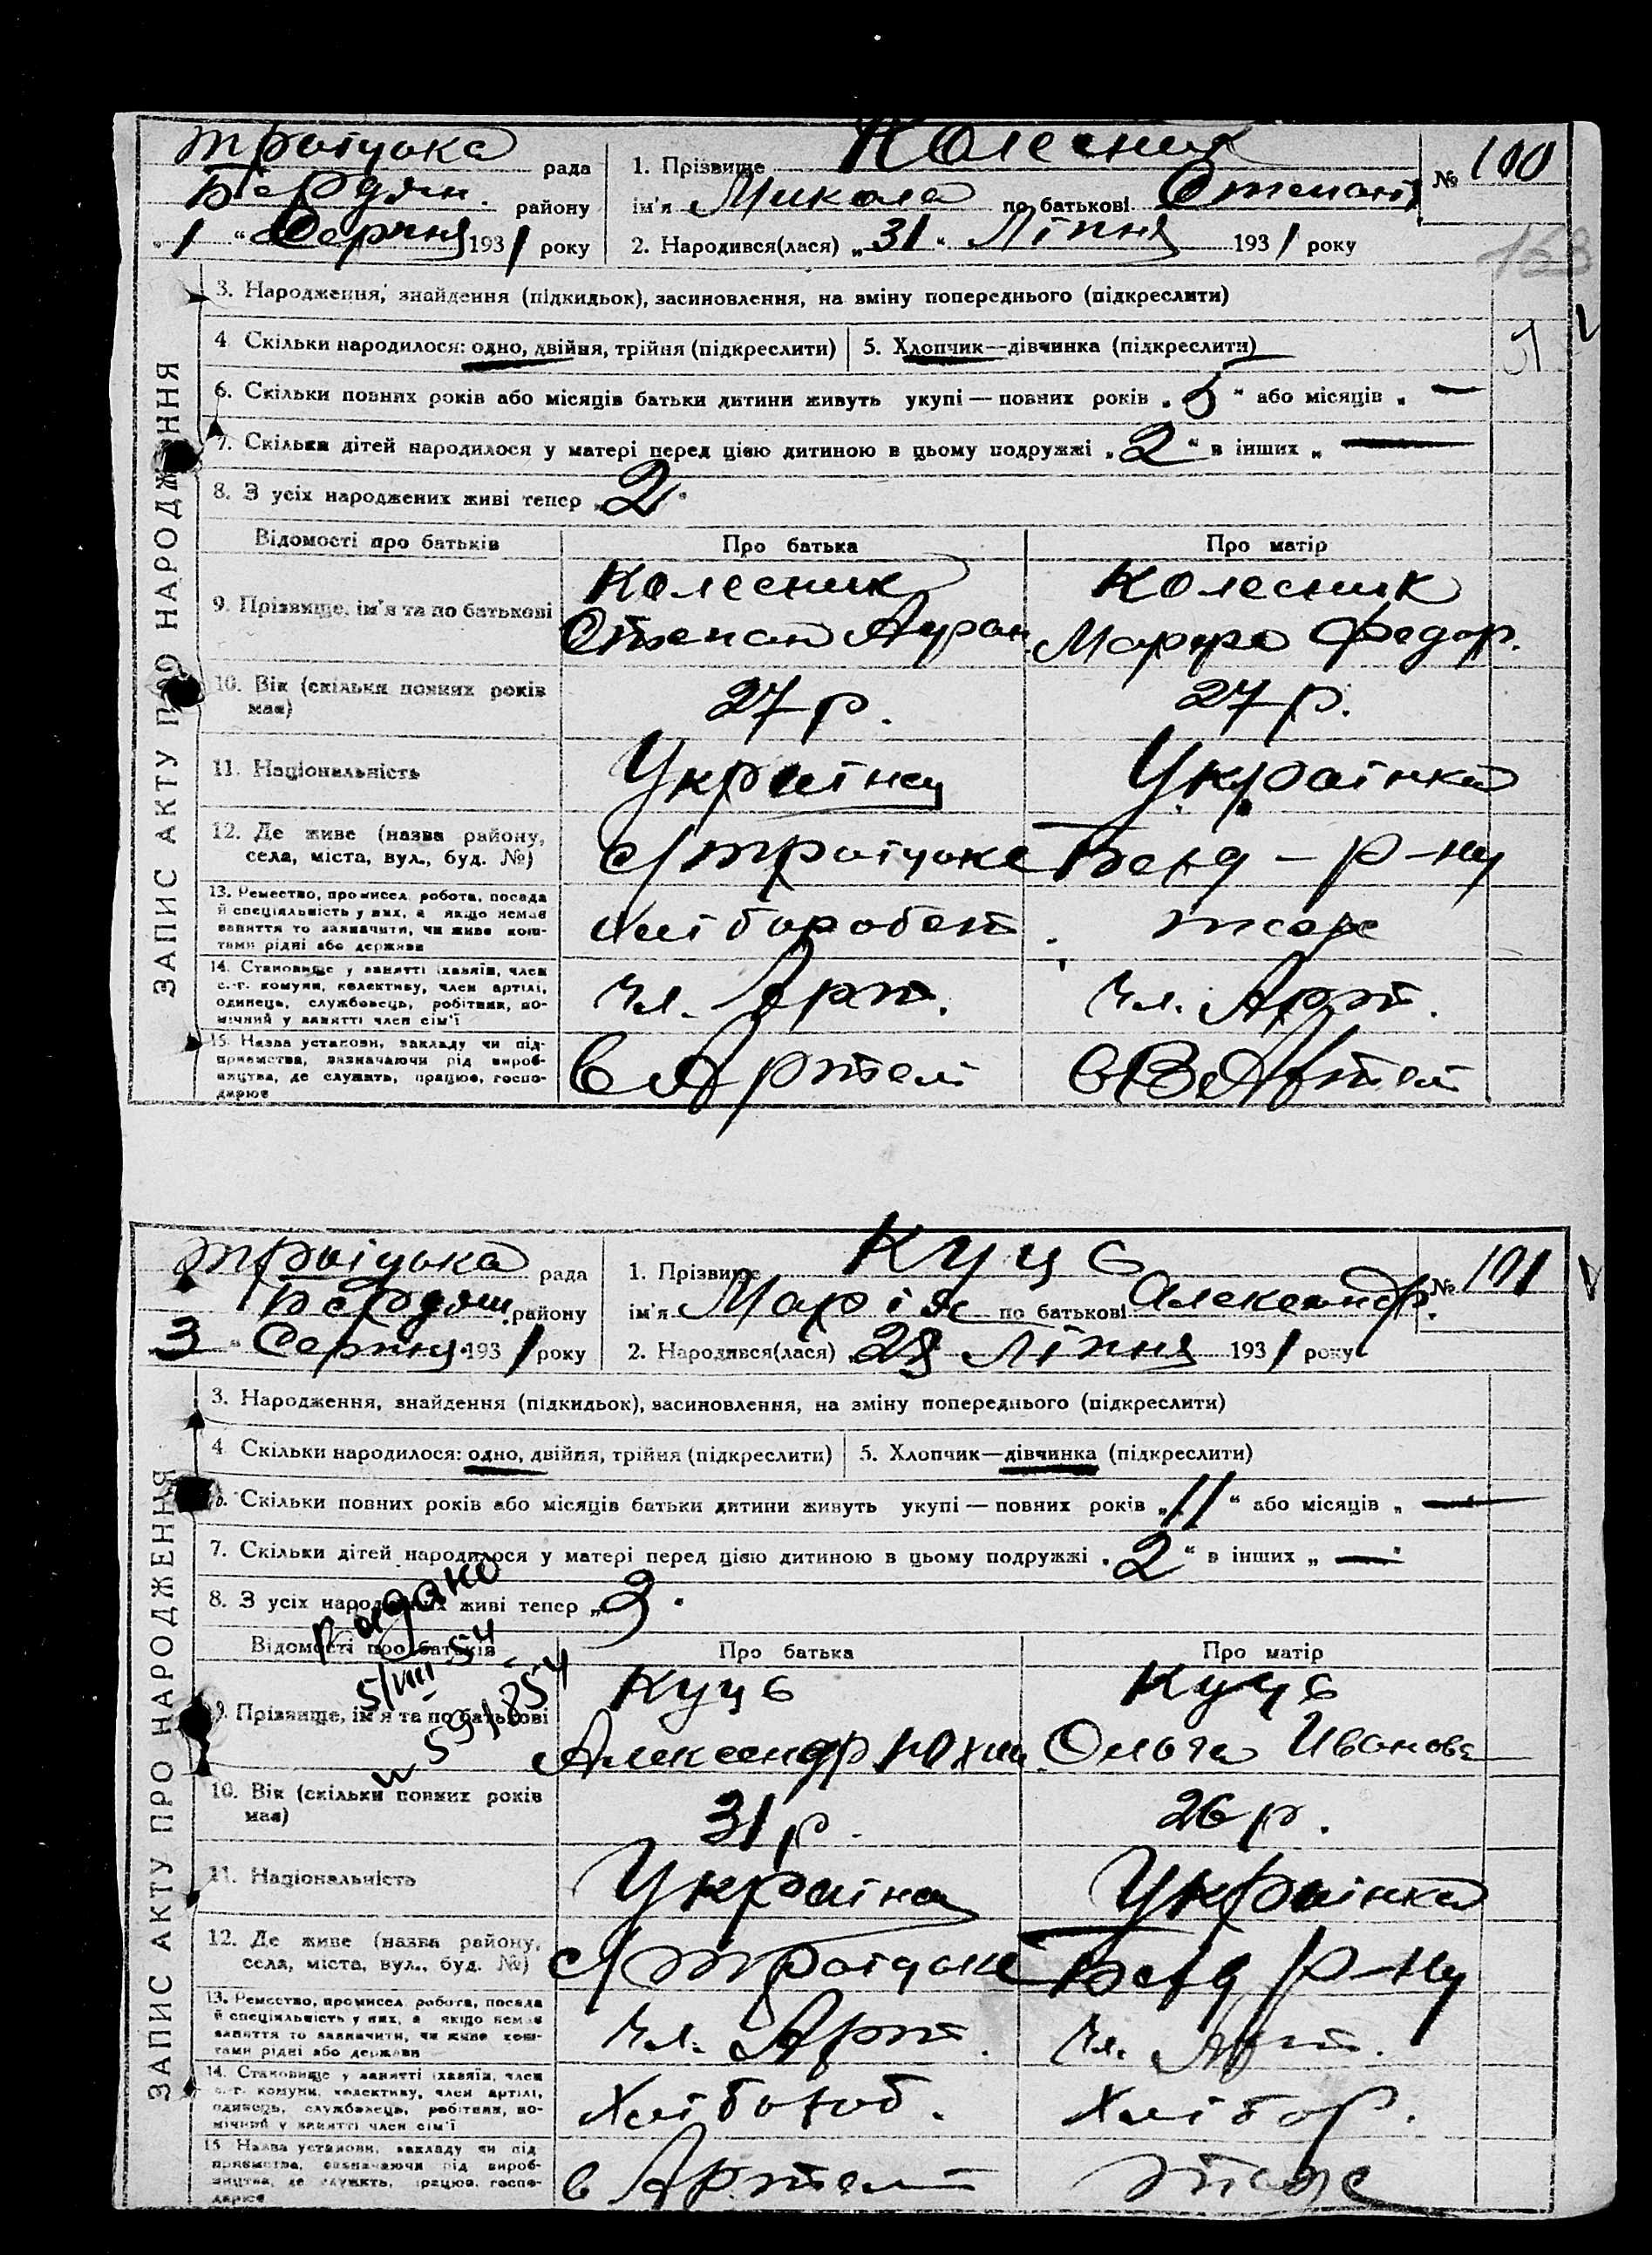 Троїцька рада
Бердян. району
"1" Серпня 1931 року
1. Прізвище Колесник
ім'я Микола по батькові Степаніч
2. Народився(лася) "31" Ліпня 1931 року
№ 100
163
3. Народження, знайдення (підкидьок), засиновлення, на зміну попереднього (підкреслити)
4. Скільки народилося: одно, двійня, трійня (підкреслити)
5. Хлопчик—дівчинка (підкреслити)
6. Скільки повних років або місяців батьки дитини живуть укупі — повних років "5" або місяців "—
7. Скільки дітей народилося у матері перед цією дитиною в цьому подружжі "2" в інших "—
8. З усіх народжених живі тепер "2"
ЗАПИС АКТУ ПРО НАРОДЖЕННЯ
Відомості про батьків Про батька Про матір
9. Прізвище, ім'я та по батькові
Колесник
Степан
Колесник
Марфа Федор.
10. Вік (скільки повних років має) 27 р. 27 р.
11. Національність Українец Українка
12. Де живе (назва району, села, міста, вул., буд. №) с/Троіцьке Берд-р-ну
13. Ремество, промисел, робота, посада
й спеціяльність у них, а якщо немає
заняття то зазначити, чи живе кош-
тами рідні або держави
Хліборобст. тоже
14. Становище у занятті (хазяїн, член
с.-г. комуни, колективу, член артілі,
одинець, службовець, робітник, по-
мічний у занятті член сім'ї
Чл. Арт. Чл. Арт.
15. Назва установи, закладу чи під-
приємства, зазначаючи рід вироб-
ництва, де служить, працює, госпо-
дарює
в Артелі в Артелі
Троіцька рада
Бердян. району
3 " Серпня 1931 року
1. Прізвище Куць
ім'я Марія по батькові Александр.
2. Народився(лася) 28 Ліпня 1931 року
№ 101
3. Народження, знайдення (підкидьок), засиновлення, на зміну попереднього (підкреслити)
4. Скільки народилося: одно, двійня, трійня (підкреслити)
5. Хлопчик—дівчинка (підкреслити)
6. Скільки повних років або місяців батьки дитини живуть укупі — повних років "11" або місяців "—
7. Скільки дітей народилося у матері перед цією дитиною в цьому подружжі "2" в інших "—"
8. З усіх народжених живі тепер "3"
ЗАПИС АКТУ ПРО НАРОДЖЕННЯ
5/VIII-54
Відомості про батьків Про батька Про матір
9. Прізвище, ім'я та по батькові
Куць
Александр Юхим.
Куць
Ольга Ивановa
10. Вік (скільки повних років має) 31 р. 26 р.
11. Національність Українец Українка
12. Де живе (назва району, села, міста, вул., буд. №) с/Троіцьке Берд р-ну
13. Ремество, промисел, робота, посада
й спеціяльність у них, а якщо немає
заняття то зазначити, чи живе кош-
тами рідні або держави
Чл. Арт. Чл. Арт.
14. Становище у занятті (хазяїн, член
с.-г. комуни, колективу, член артілі,
одинець, службовець, робітник, по-
мічний у занятті член сім'ї
Хлібороб. Хлібор.
15. Назва установи, закладу чи під-
приємства, зазначаючи рід вироб-
ництва, де служить, працює, госпо-
дарює
в Артелі тоже